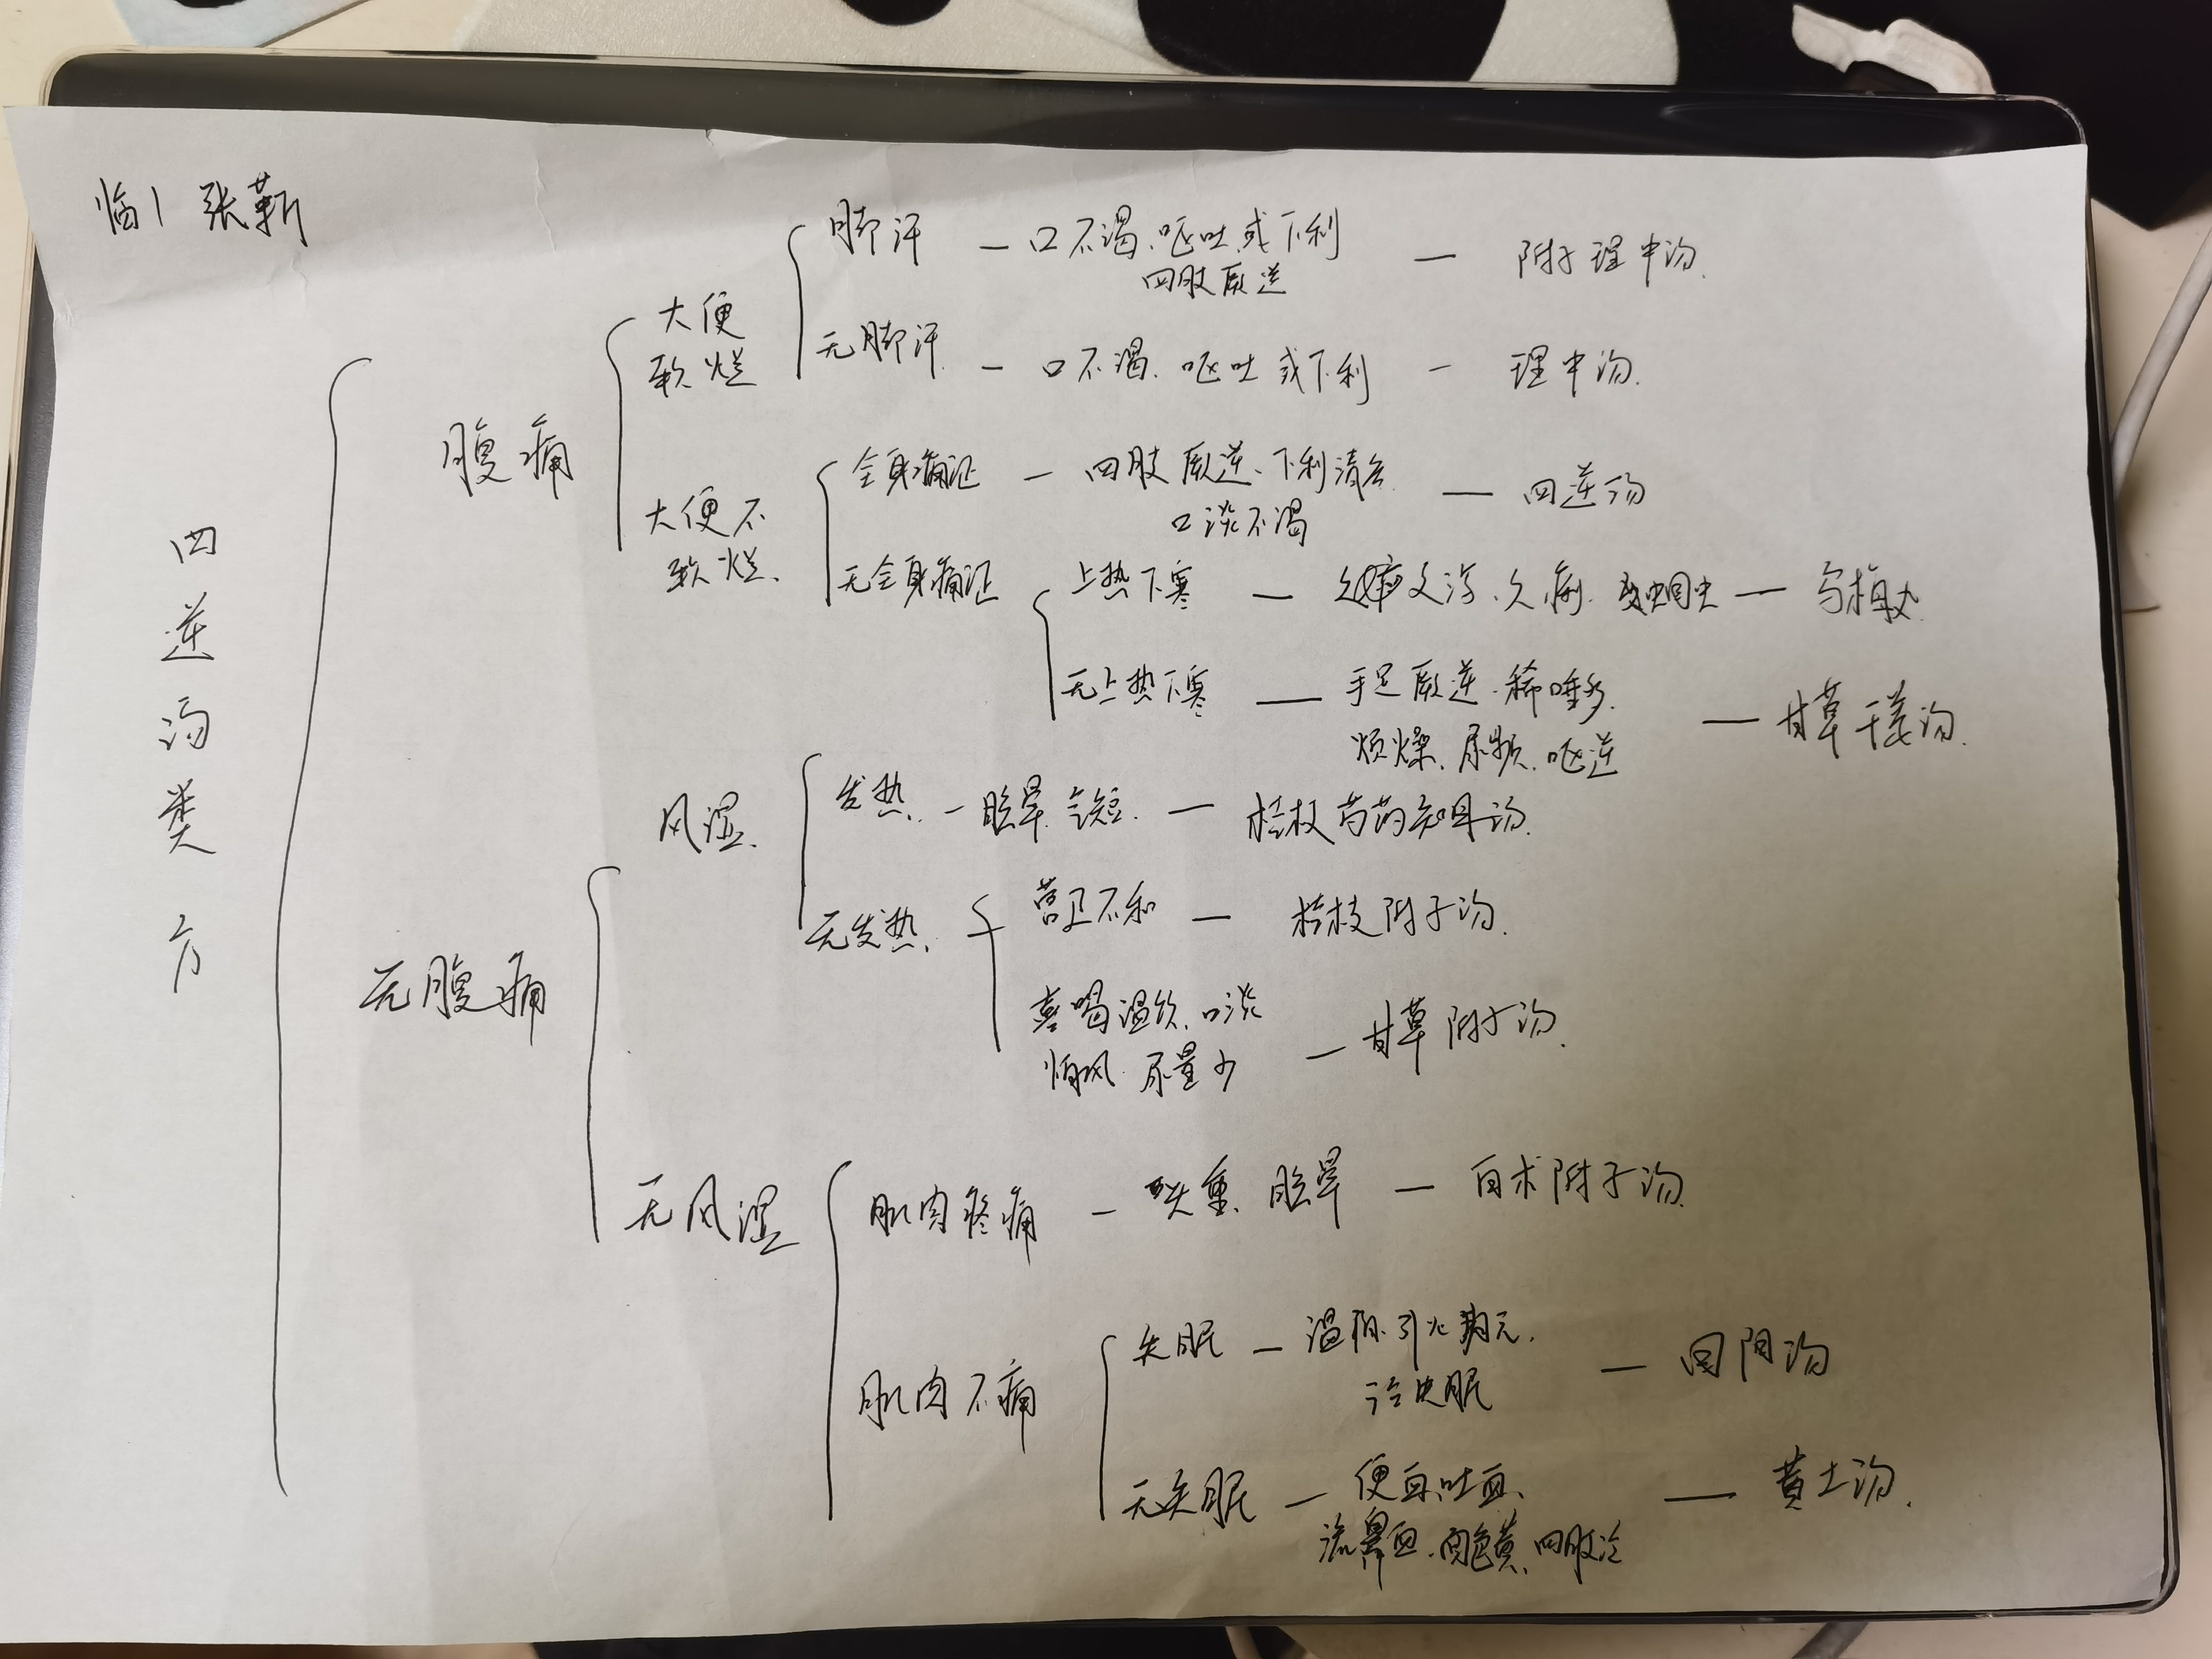 临1 张靳
四逆汤类方
腹痛
大便
软烂
脚汗 — 口不渴、呕吐或下利
四肢厥逆 — 附子理中汤.
无脚汗 — 口不渴、呕吐或下利 — 理中汤.
大便不
软烂.
全身痛证 — 四肢厥逆、下利清谷
口淡不渴 — 四逆汤
无全身痛证
上热下寒 — 久泻、久痢 蛔虫 — 乌梅丸
无上热下寒 — 手足厥逆、稀唾多.
烦燥、尿频、呕逆 — 甘草干姜汤.
无腹痛
风湿.
发热. — 眩晕 气短. — 桂枝芍药知母汤.
无发热.
营卫不和 — 桂枝附子汤.
喜喝温饮、口淡
怕风 尿量少 — 甘草附子汤.
无风湿
肌肉疼痛 — 头重、眩晕 — 白术附子汤.
肌肉不痛
失眠 — 温阳、引火归元.
治失眠 — 回阴汤
无失眠 — 便血、吐血、
流鼻血、面色黄、四肢冷 — 黄土汤.